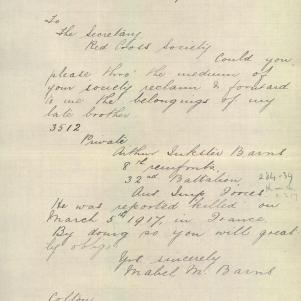 To
The Secretary
Red Cross Society
Could you
please thro' the medium of
your society reclaim & forward
to me the belongings of my
late brother
3512
Private
Arthur Inkster Barns
8th reinfonts.
32nd Battalion
Aus Imp Forces
He was reported killed on
March 5th 1917 in France
By doing so you will great
ly oblige
Yrs sincerely
Mabel M. Barns